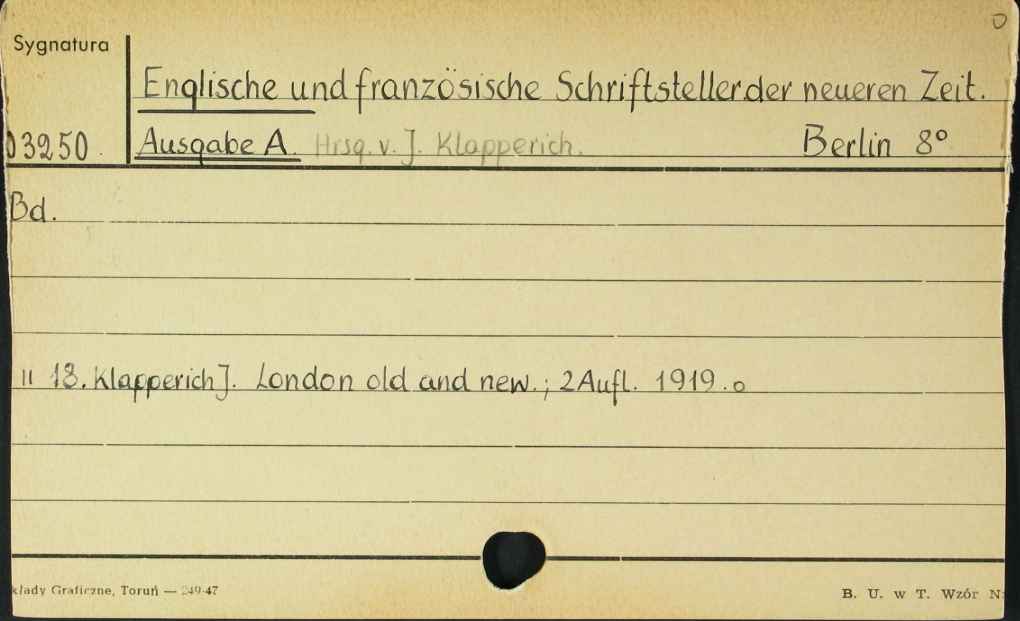 Sygnatura
Englische und französische Schriftsteller der neueren Zeit.
03250. Ausgabe A. Hrsg. v. J. Klapperich. Berlin 8°
Bd.
" 18. Klapperich J. London old and new.; 2 Aufl. 1919.
kłady Graficzne, Toruń — 249-47
B. U. w T. Wzór N